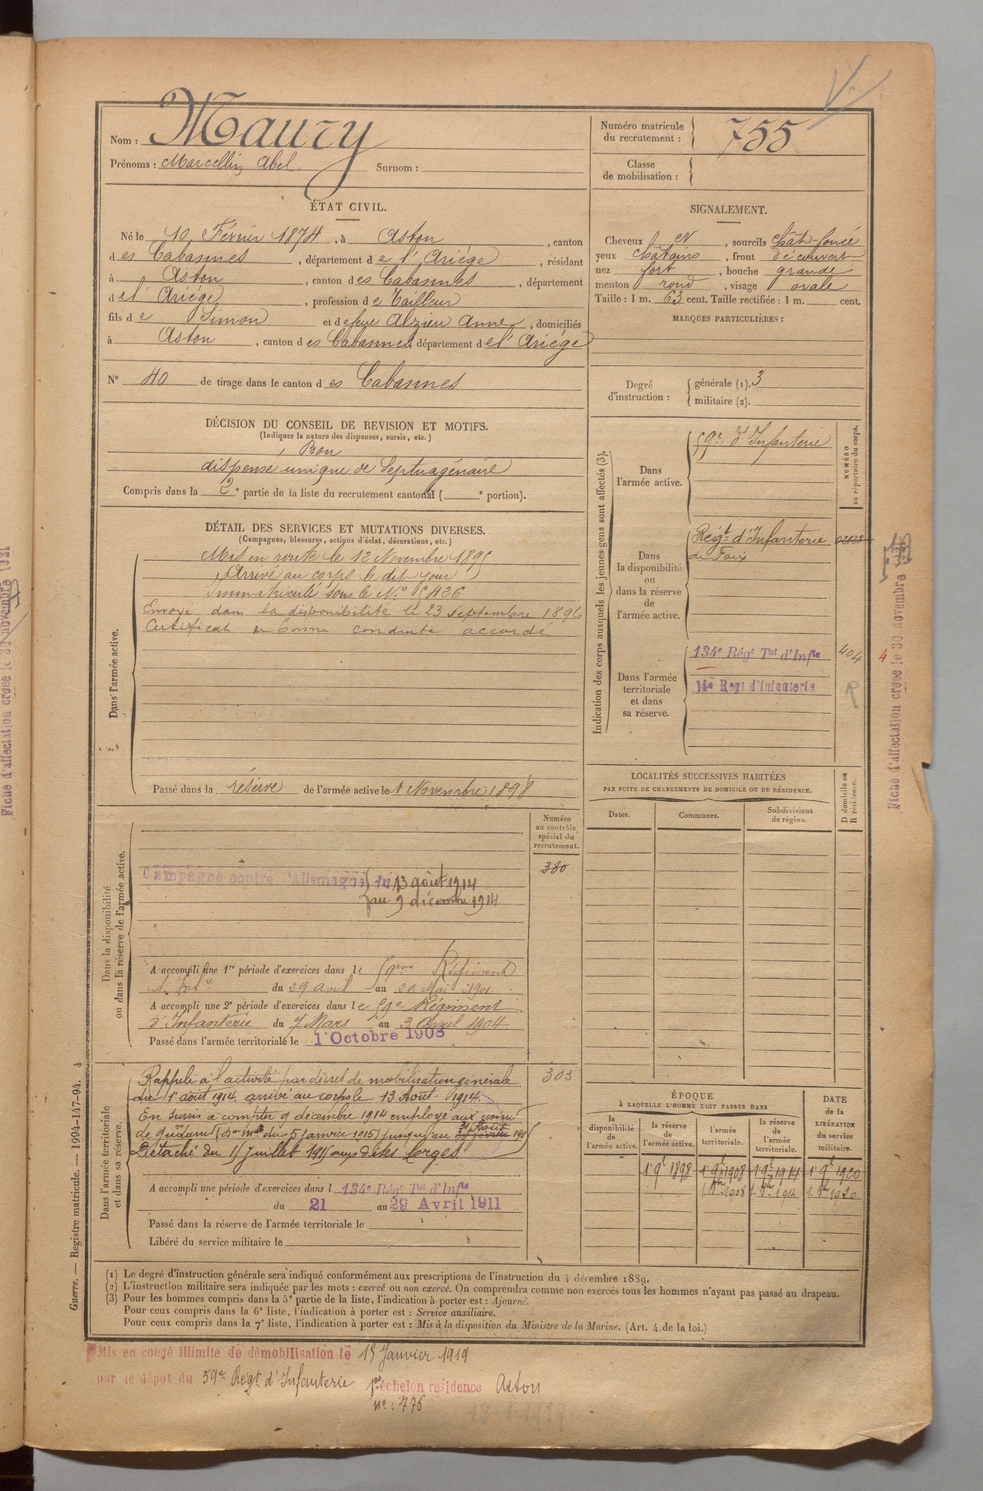 Nom : Maury
Prénoms : Marcellin Abel Surnom :
Numéro matricule du recrutement : 755
Classe de mobilisation :
ÉTAT CIVIL.
Né le 10 Février 1874, à Aston, canton
des Cabannes, département de l'Ariège, résidant
à Aston, canton des Cabannes, département
de l'Ariège, profession de Tailleur
fils de Simon et de feue Alzieu Anne, domiciliés
à Aston, canton des Cabannes, département de l'Ariège
N° 40 de tirage dans le canton des Cabannes
SIGNALEMENT.
Cheveux et sourcils chât. foncé
yeux châtains, front découvert
nez fort, bouche grande
menton rond, visage ovale
Taille : 1 m. 63 cent. Taille rectifiée : 1 m. cent.
MARQUES PARTICULIÈRES :
Degré d'instruction : générale (1). 3
militaire (2).
DÉCISION DU CONSEIL DE REVISION ET MOTIFS.
(Indiquer la nature des dispenses, sursis, etc.)
Bon
dispense unique de Septuagénaire
Compris dans la 2e partie de la liste du recrutement cantonal ( e portion).
DÉTAIL DES SERVICES ET MUTATIONS DIVERSES.
(Campagnes, blessures, actions d'éclat, décorations, etc.)
Dans l'armée active.
Mis en route le 12 Novembre 1895
Arrivé au corps le dit jour
Immatriculé sous le N°
Envoyé dans la disponibilité le 23 septembre 1896
Certificat de bonne conduite accordé
Passé dans la réserve de l'armée active le 1 Novembre 1898
Indication des corps auxquels les jeunes gens sont affectés (3).
NUMÉRO au répertoire du corps.
Dans l'armée active.
59e d'Infanterie
Dans la disponibilité ou dans la réserve de l'armée active.
Régt d'Infanterie
de Foix
Dans l'armée territoriale et dans sa réserve.
134e Régt Tal d'Infie 404
14e Regt d'Infanterie
LOCALITÉS SUCCESSIVES HABITÉES
PAR SUITE DE CHANGEMENTS DE DOMICILE OU DE RÉSIDENCE.
Dates. Communes. Subdivisions de région. D domicile ou R résidence.
Dans la disponibilité ou dans la réserve de l'armée active.
Numéro au contrôle spécial du recrutement.
380
Campagne contre l'Allemagne du 13 août 1914
au 9 décembre 1914
A accompli une 1re période d'exercices dans le 59eme Régiment
d'Infie du 29 avril au 20 mai 1901
A accompli une 2e période d'exercices dans le 59e Régiment
d'Infanterie du 7 Mars au 3 Avril 1904
Passé dans l'armée territoriale le 1 Octobre 1908
Dans l'armée territoriale et dans sa réserve.
303
Rappelé à l'activité par décret de mobilisation générale
du 1er août 1914, arrivé au corps le 13 Août 1914.
En sursis à compter 9 décembre 1914 employé aux
(Don mlle du 5 janvier 1915) jusqu'au 31 Août
Détaché du 15 juillet 1915 aux Forges
A accompli une période d'exercices dans l 134e Régt Tal d'Infie
du 21 au 29 Avril 1911
Passé dans la réserve de l'armée territoriale le
Libéré du service militaire le
ÉPOQUE
À LAQUELLE L'HOMME DOIT PASSER DANS
la disponibilité de l'armée active. la réserve de l'armée active. l'armée territoriale. la réserve de l'armée territoriale.
DATE de la LIBÉRATION du service militaire.
1 9t 1898 1 9t 1908 1 9t 1914 1 9t 1920
1 8bre 1908 1 8bre 1914 1 8bre 1920
(1) Le degré d'instruction générale sera indiqué conformément aux prescriptions de l'instruction du 4 décembre 1889.
(2) L'instruction militaire sera indiquée par les mots : exercé ou non exercé. On comprendra comme non exercés tous les hommes n'ayant pas passé au drapeau.
(3) Pour les hommes compris dans la 5e partie de la liste, l'indication à porter est : Ajourné.
Pour ceux compris dans la 6e liste, l'indication à porter est : Service auxiliaire.
Pour ceux compris dans la 7e liste, l'indication à porter est : Mis à la disposition du Ministre de la Marine. (Art. 4 de la loi.)
Guerre. — Registre matricule. — 1994-147-94. 4
Mis en congé illimité de démobilisation le 15 Janvier 1919
par le dépôt du 59e Régt d'Infanterie 1er échelon résidence Aston
n° : 776
Fiche d'affectation créée le 30 novembre